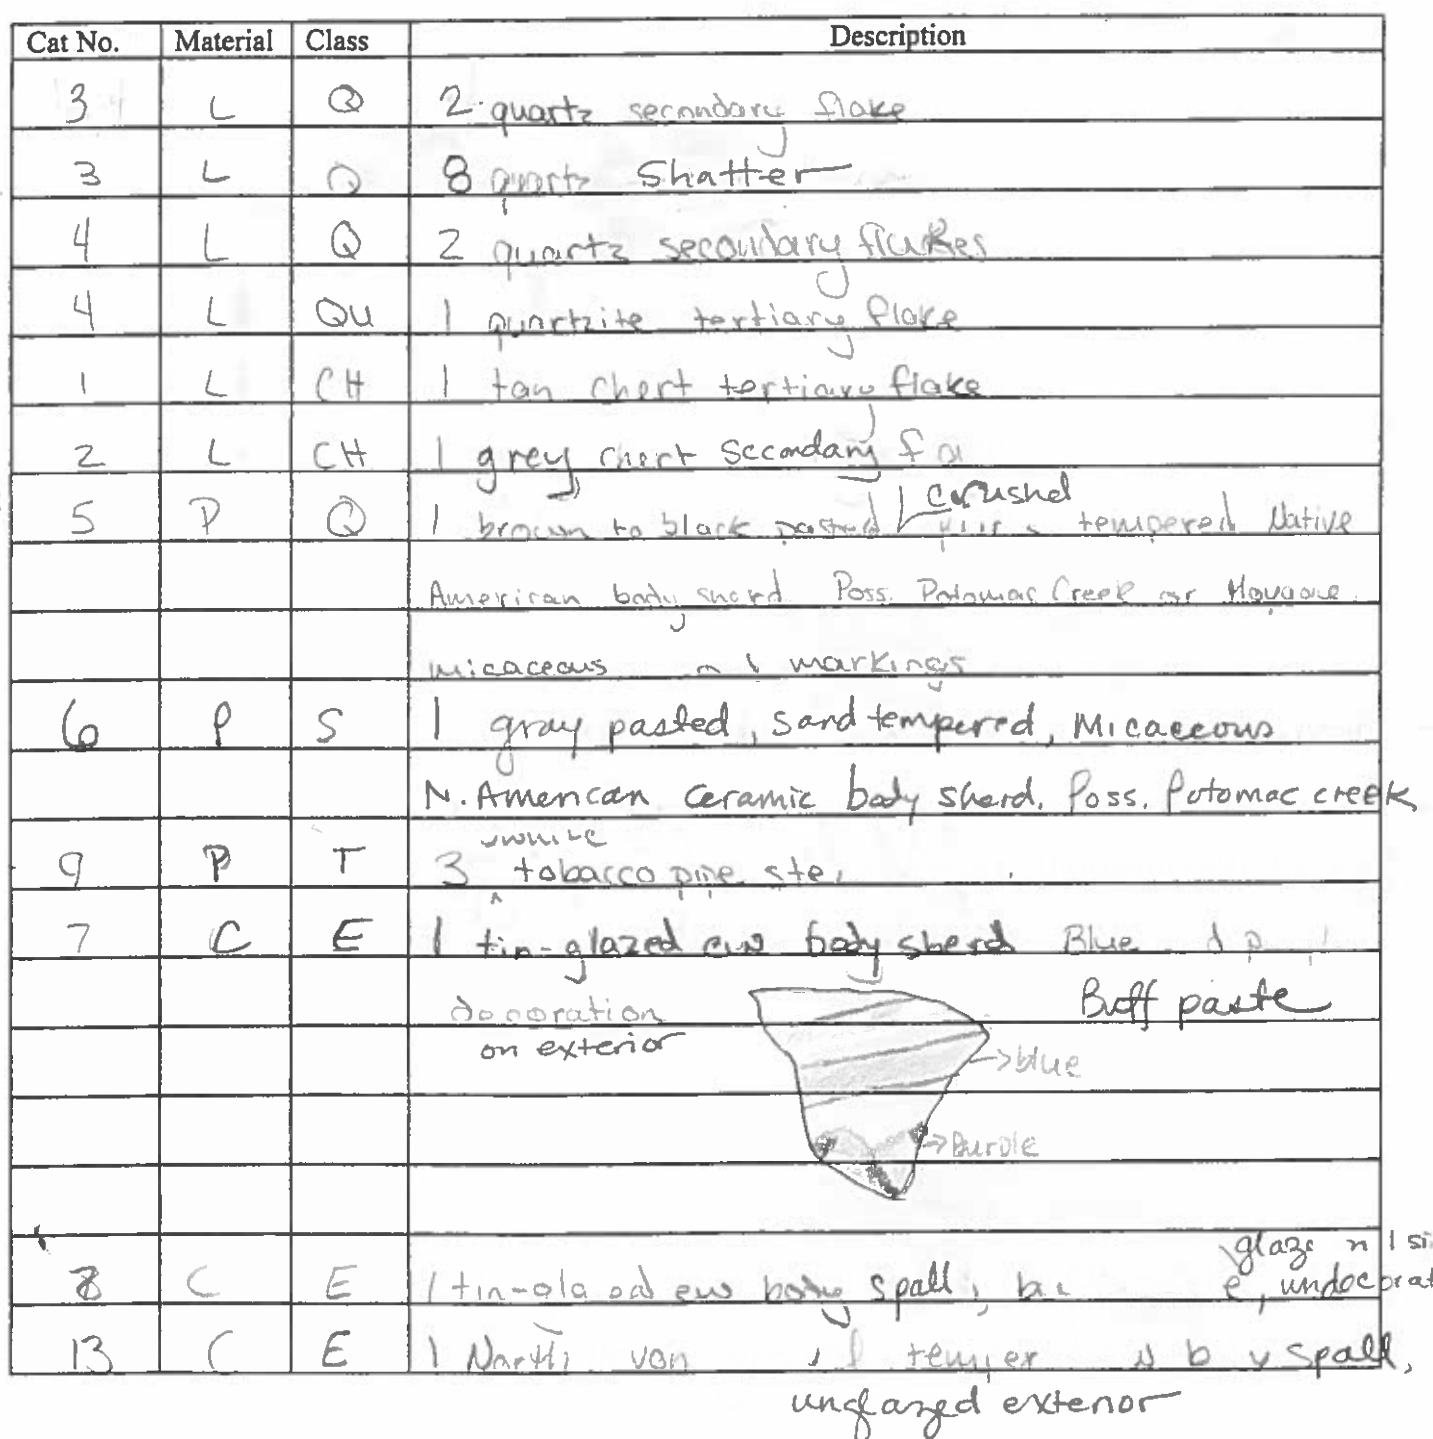 Cat No. Material Class Description
3 L Q 2 quartz secondary flake
3 L Q 8 quartz Shatter
4 L Q 2 quartz secondary flakes
4 L QU 1 quartzite tertiary flake
1 L CH 1 tan chert tertiary flake
2 L CH 1 grey chert secondary
crushed
5 P Q 1 brown to black pasted tempered Native
American body sherd Poss. Potomac Creek or Moyaone
micaceous markings
6 P S 1 gray pasted, sand tempered, Micaceous
N. American ceramic body sherd. Poss. Potomac creek
white
9 P T 3 tobacco pipe
7 C E 1 tin-glazed ew body sherd Blue
decoration Buff paste
on exterior
→blue
→Purple
glaze
8 C E 1 tin-glazed ew body spall,
13 C E 1 North temper spall,
unglazed exterior